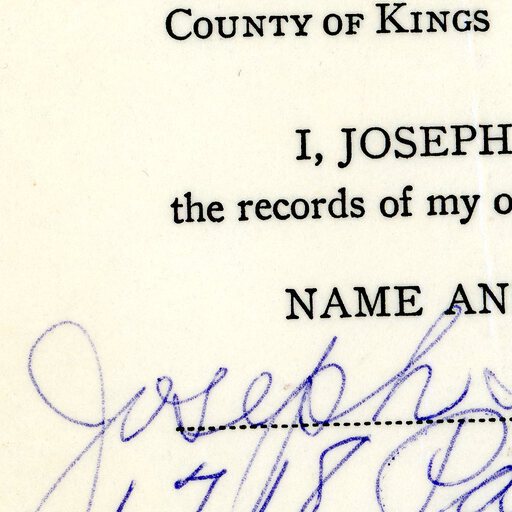 COUNTY OF KINGS
I, JOSEPH
the records of my o
NAME AN
Joseph
1718 Pa